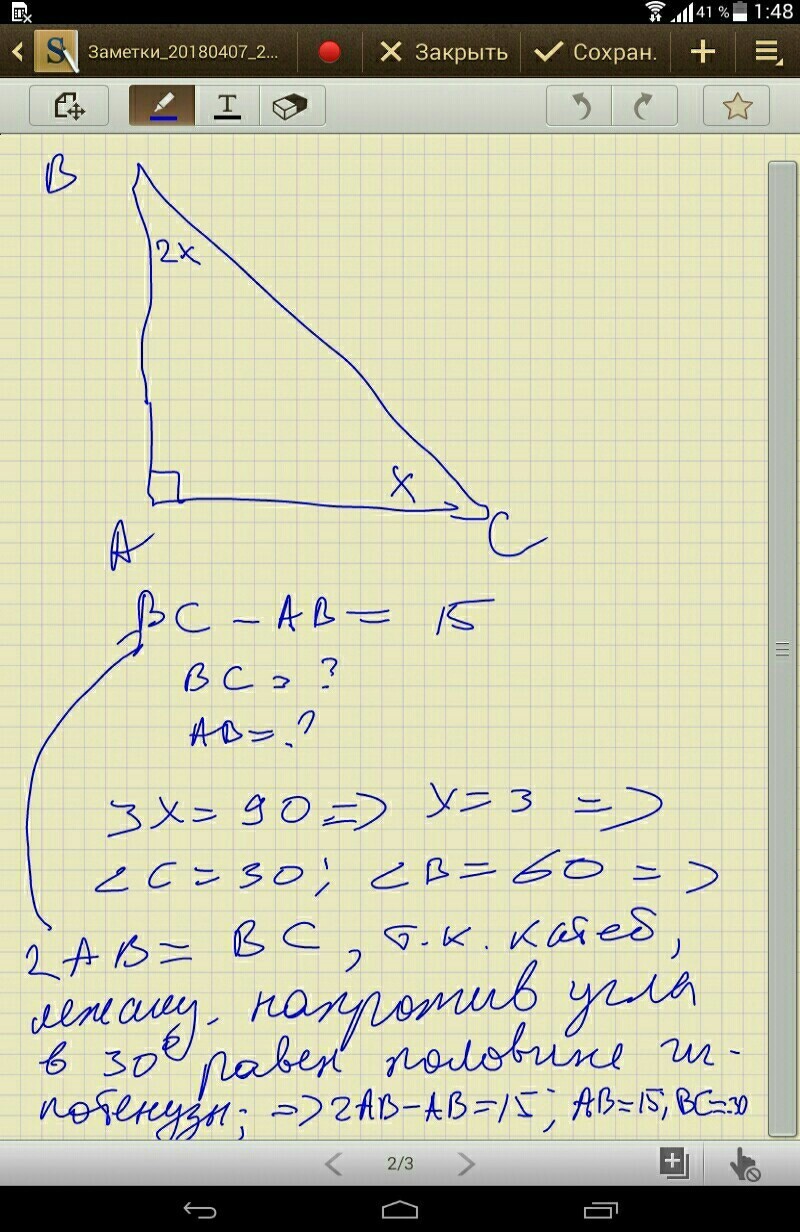 41 % 1:48
Заметки_20180407_2... Закрыть Сохран.
T
B
2x
x
A
C
BC - AB = 15
BC = ?
AB = ?
3x = 90 => x = 3 =>
∠C = 30; ∠B = 60 =>
2AB = BC, т.к. катет,
лежащ. напротив угла
в 30° равен половине ги-
потенузы; => 2AB-AB=15; AB=15, BC=30
2/3